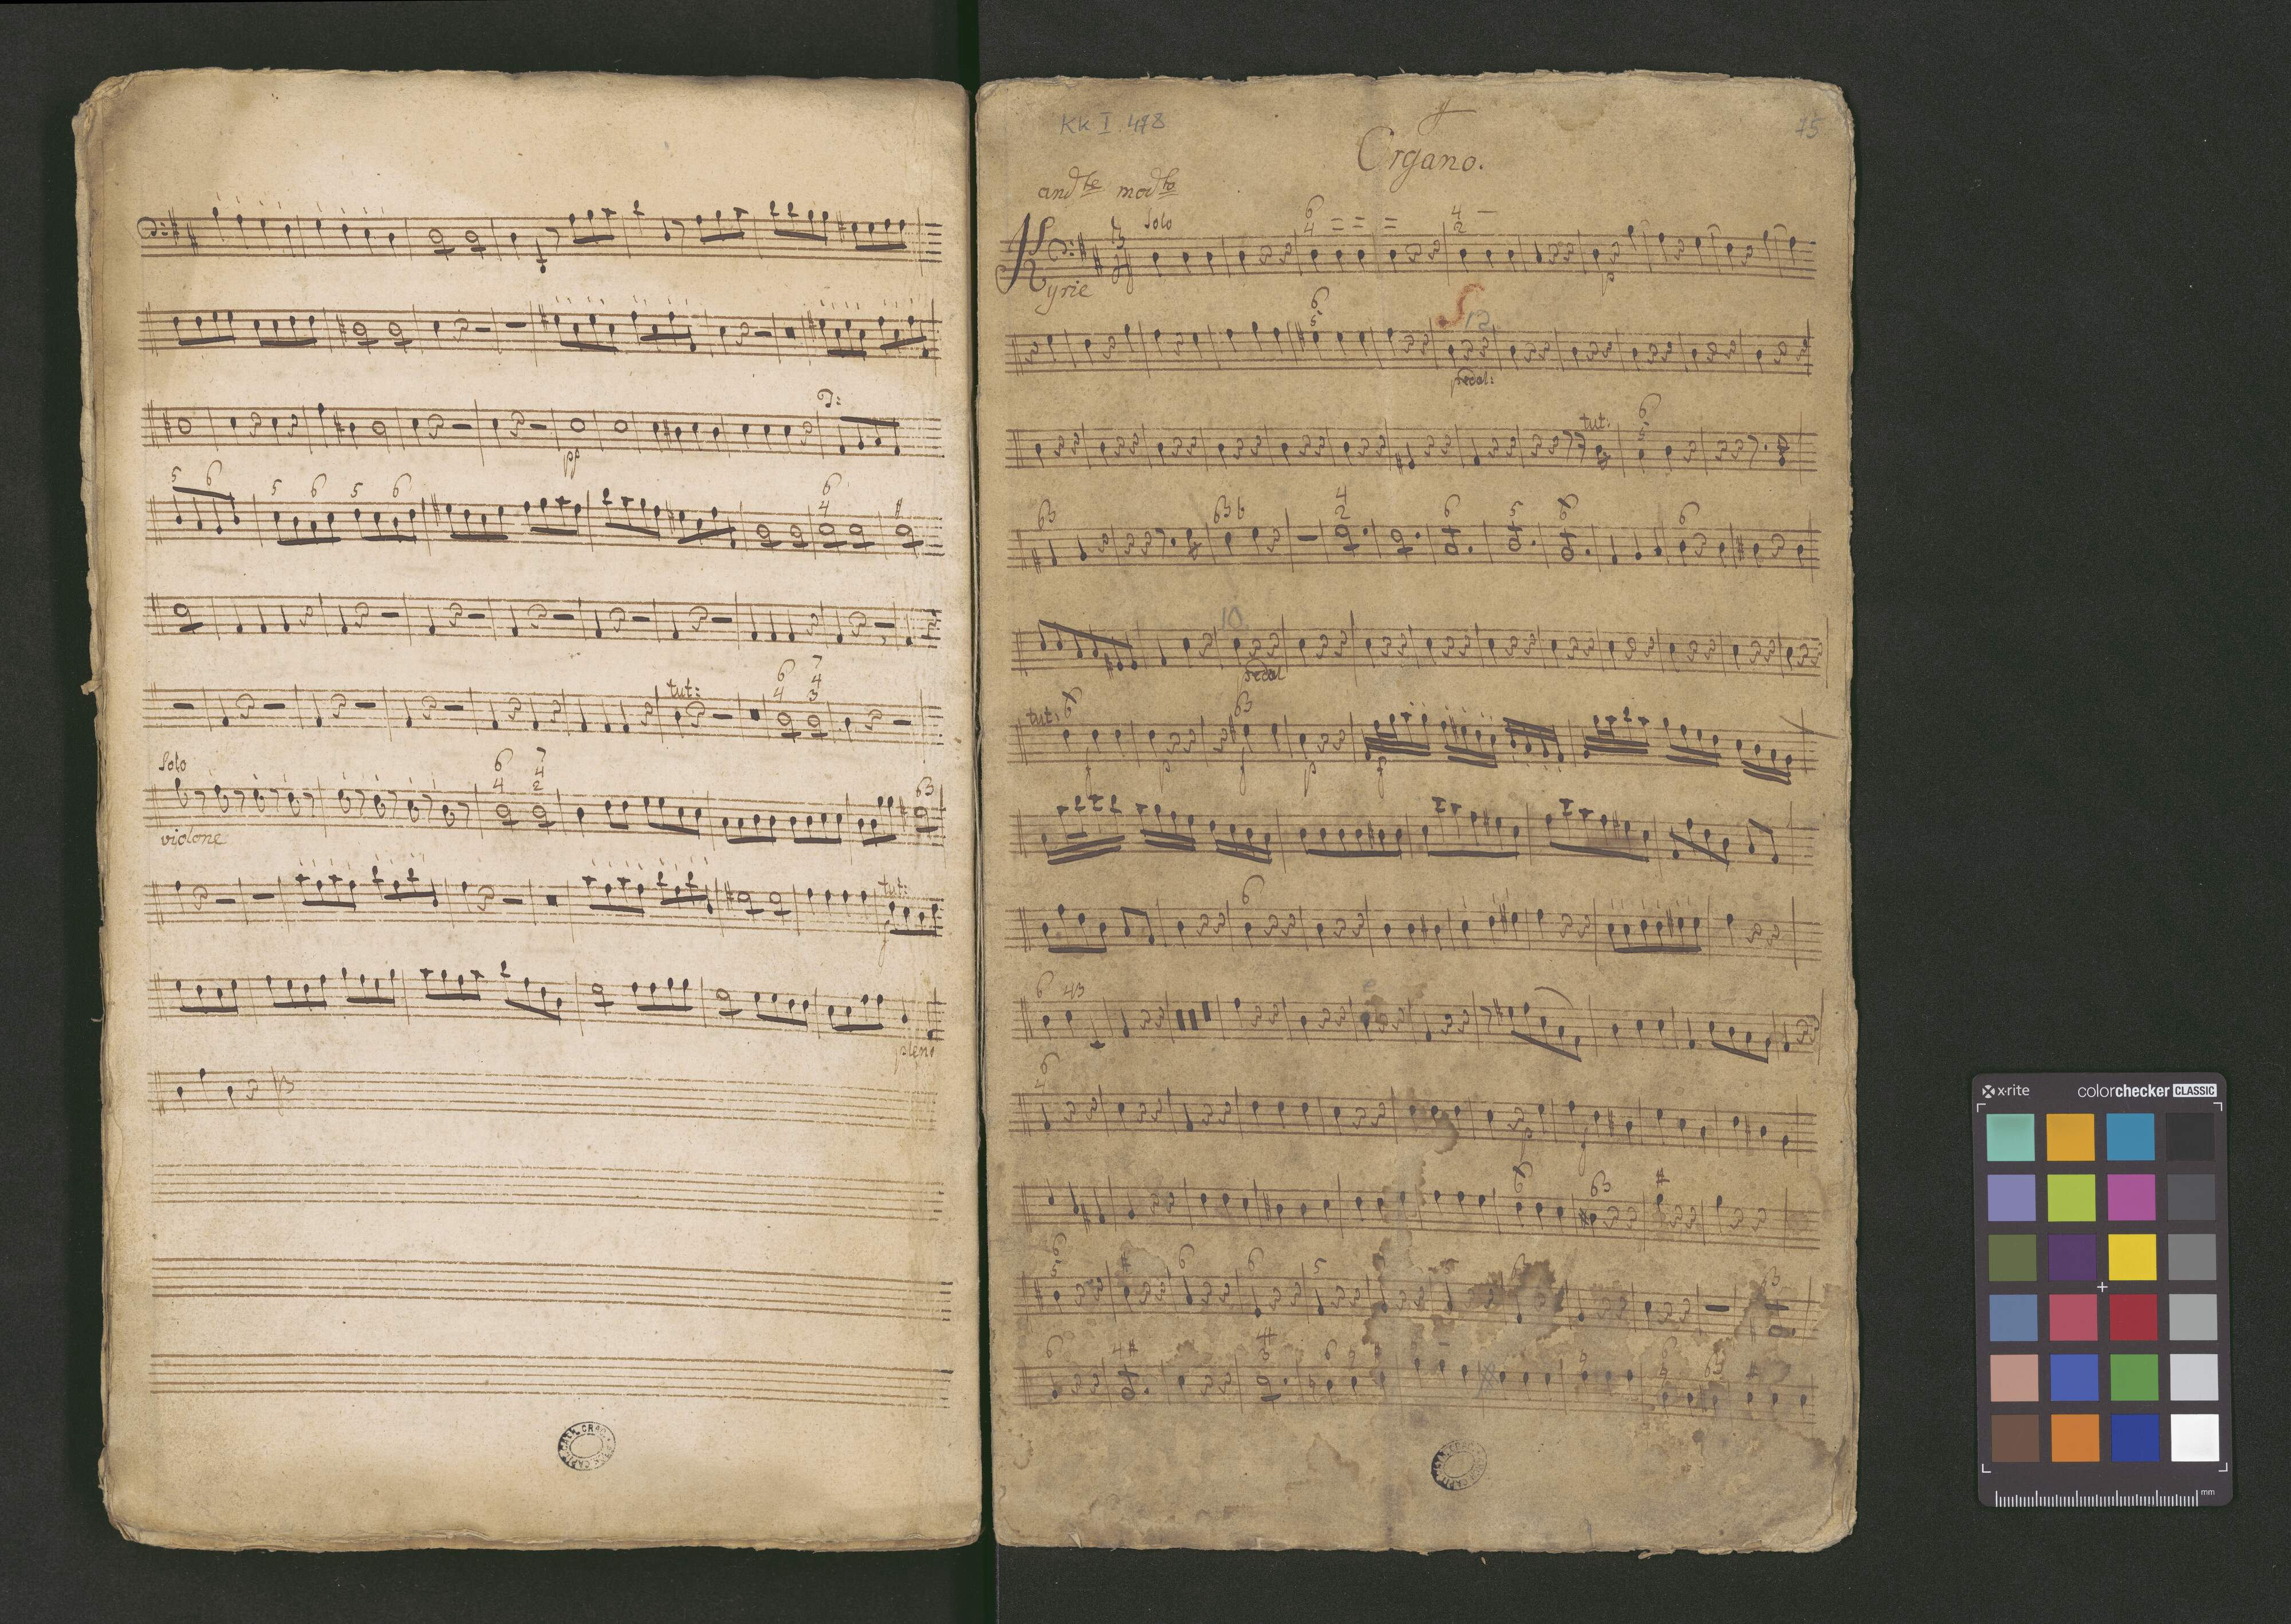 pp
5 6 5 6 5 6 6 4
tut: 6 4 7 4 3
Solo 6 4 7 4 2 63
violone
tut:
f
pleno
KK I. 478
75
Organo.
and te mod to
Solo 6 4 = = = 4 2 –
Kyrie
p
6 5 12
pedal:
tut: 6 5
63 63 6 4 2 6 5 6 6
10
pedal
tut: 6 63
f p f p f
6
6 43
6 4
p f
6 63 #
6 5 # 6 6 5 5 63
6 4 # 6
x-rite colorchecker CLASSIC
mm